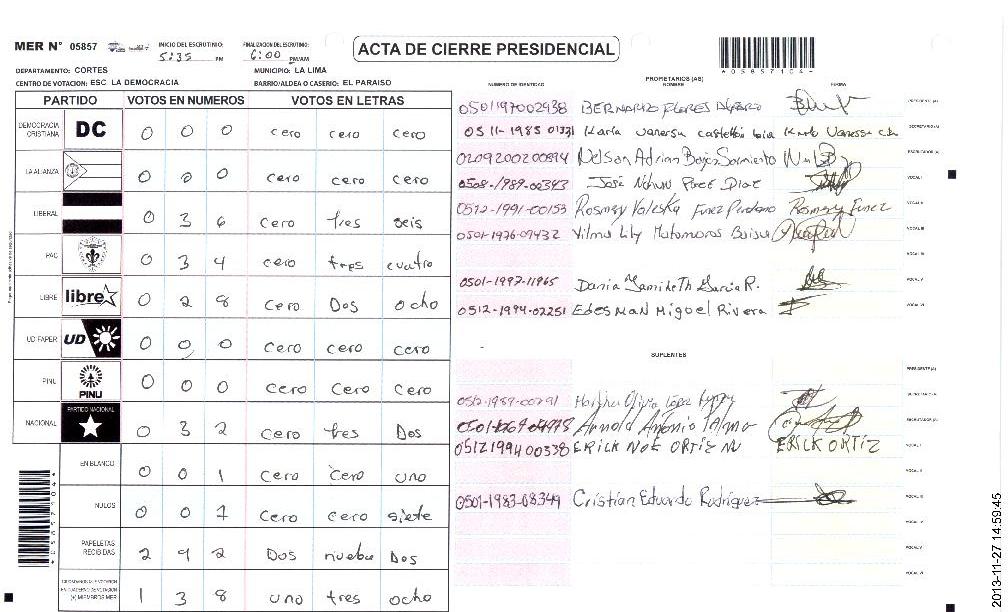 MER N° 05857
INICIO DEL ESCRUTINIO: 5:35 PM
FINALIZACION DEL ESCRUTINIO: 6:00 PM/AM
ACTA DE CIERRE PRESIDENCIAL
*05857104*
DEPARTAMENTO: CORTES MUNICIPIO: LA LIMA
CENTRO DE VOTACION: ESC. LA DEMOCRACIA BARRIO/ALDEA O CASERIO: EL PARAISO
PARTIDO VOTOS EN NUMEROS VOTOS EN LETRAS
DEMOCRACIA CRISTIANA DC 0 0 0 cero cero cero
LA ALIANZA 0 0 0 cero cero cero
LIBERAL 0 3 6 cero tres seis
PAC 0 3 4 cero tres cuatro
LIBRE libre 0 2 8 cero Dos ocho
UD FAPER UD 0 0 0 cero cero cero
PINU PINU 0 0 0 cero cero cero
NACIONAL PARTIDO NACIONAL 0 3 2 cero tres Dos
EN BLANCO 0 0 1 cero cero uno
NULOS 0 0 7 cero cero siete
PAPELETAS RECIBIDAS 2 9 2 Dos nueve Dos
1 3 8 uno tres ocho
NUMERO DE IDENTIDAD PROPIETARIOS (AS) NOMBRE FIRMA
0501197002938 BERNARDO FLORES PRESIDENTE (A)
0511-1985 01331 Karla Vanessa SECRETARIO (A)
0209200200894 Nelson Adrian Sarmiento ESCRUTADOR (A)
0508-1989-00343 José VOCAL I
0512-1991-00153 Rosmery Funez VOCAL II
0501-1976-09432 Vilma Lily Matamoros VOCAL III
0501-1997-11965 Dania García R. VOCAL V
0512-1994-02251 Edesman Miguel Rivera VOCAL VI
SUPLENTES
PRESIDENTE (A)
0512-1959-00291 Olivia López SECRETARIO (A)
Arnold Antonio ESCRUTADOR (A)
0512199400338 ERICK NOE ORTIZ ERICK ORTIZ VOCAL I
0501-1983-08349 Cristian Eduardo Rodríguez VOCAL III
VOCAL IV
VOCAL V
VOCAL VI
2013-11-27 14:59:45